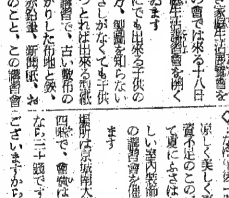 い會では來る十八日
庭生活講習會を開く
ゐます
にでも出來る子供の
々、製圖を知らない
さしがなくても子供
つとれば出來る型紙
講習で、古い敷布の
かりした布地と鋏、
赤鉛筆、新聞紙、お
のこと。この講習會
涼しく美しく
資不足のこの
て夏にふさは
しい室内裝飾
の講習會を催
ます
場所は京城南大
四階で、會費は
なら三十錢です
ございますから